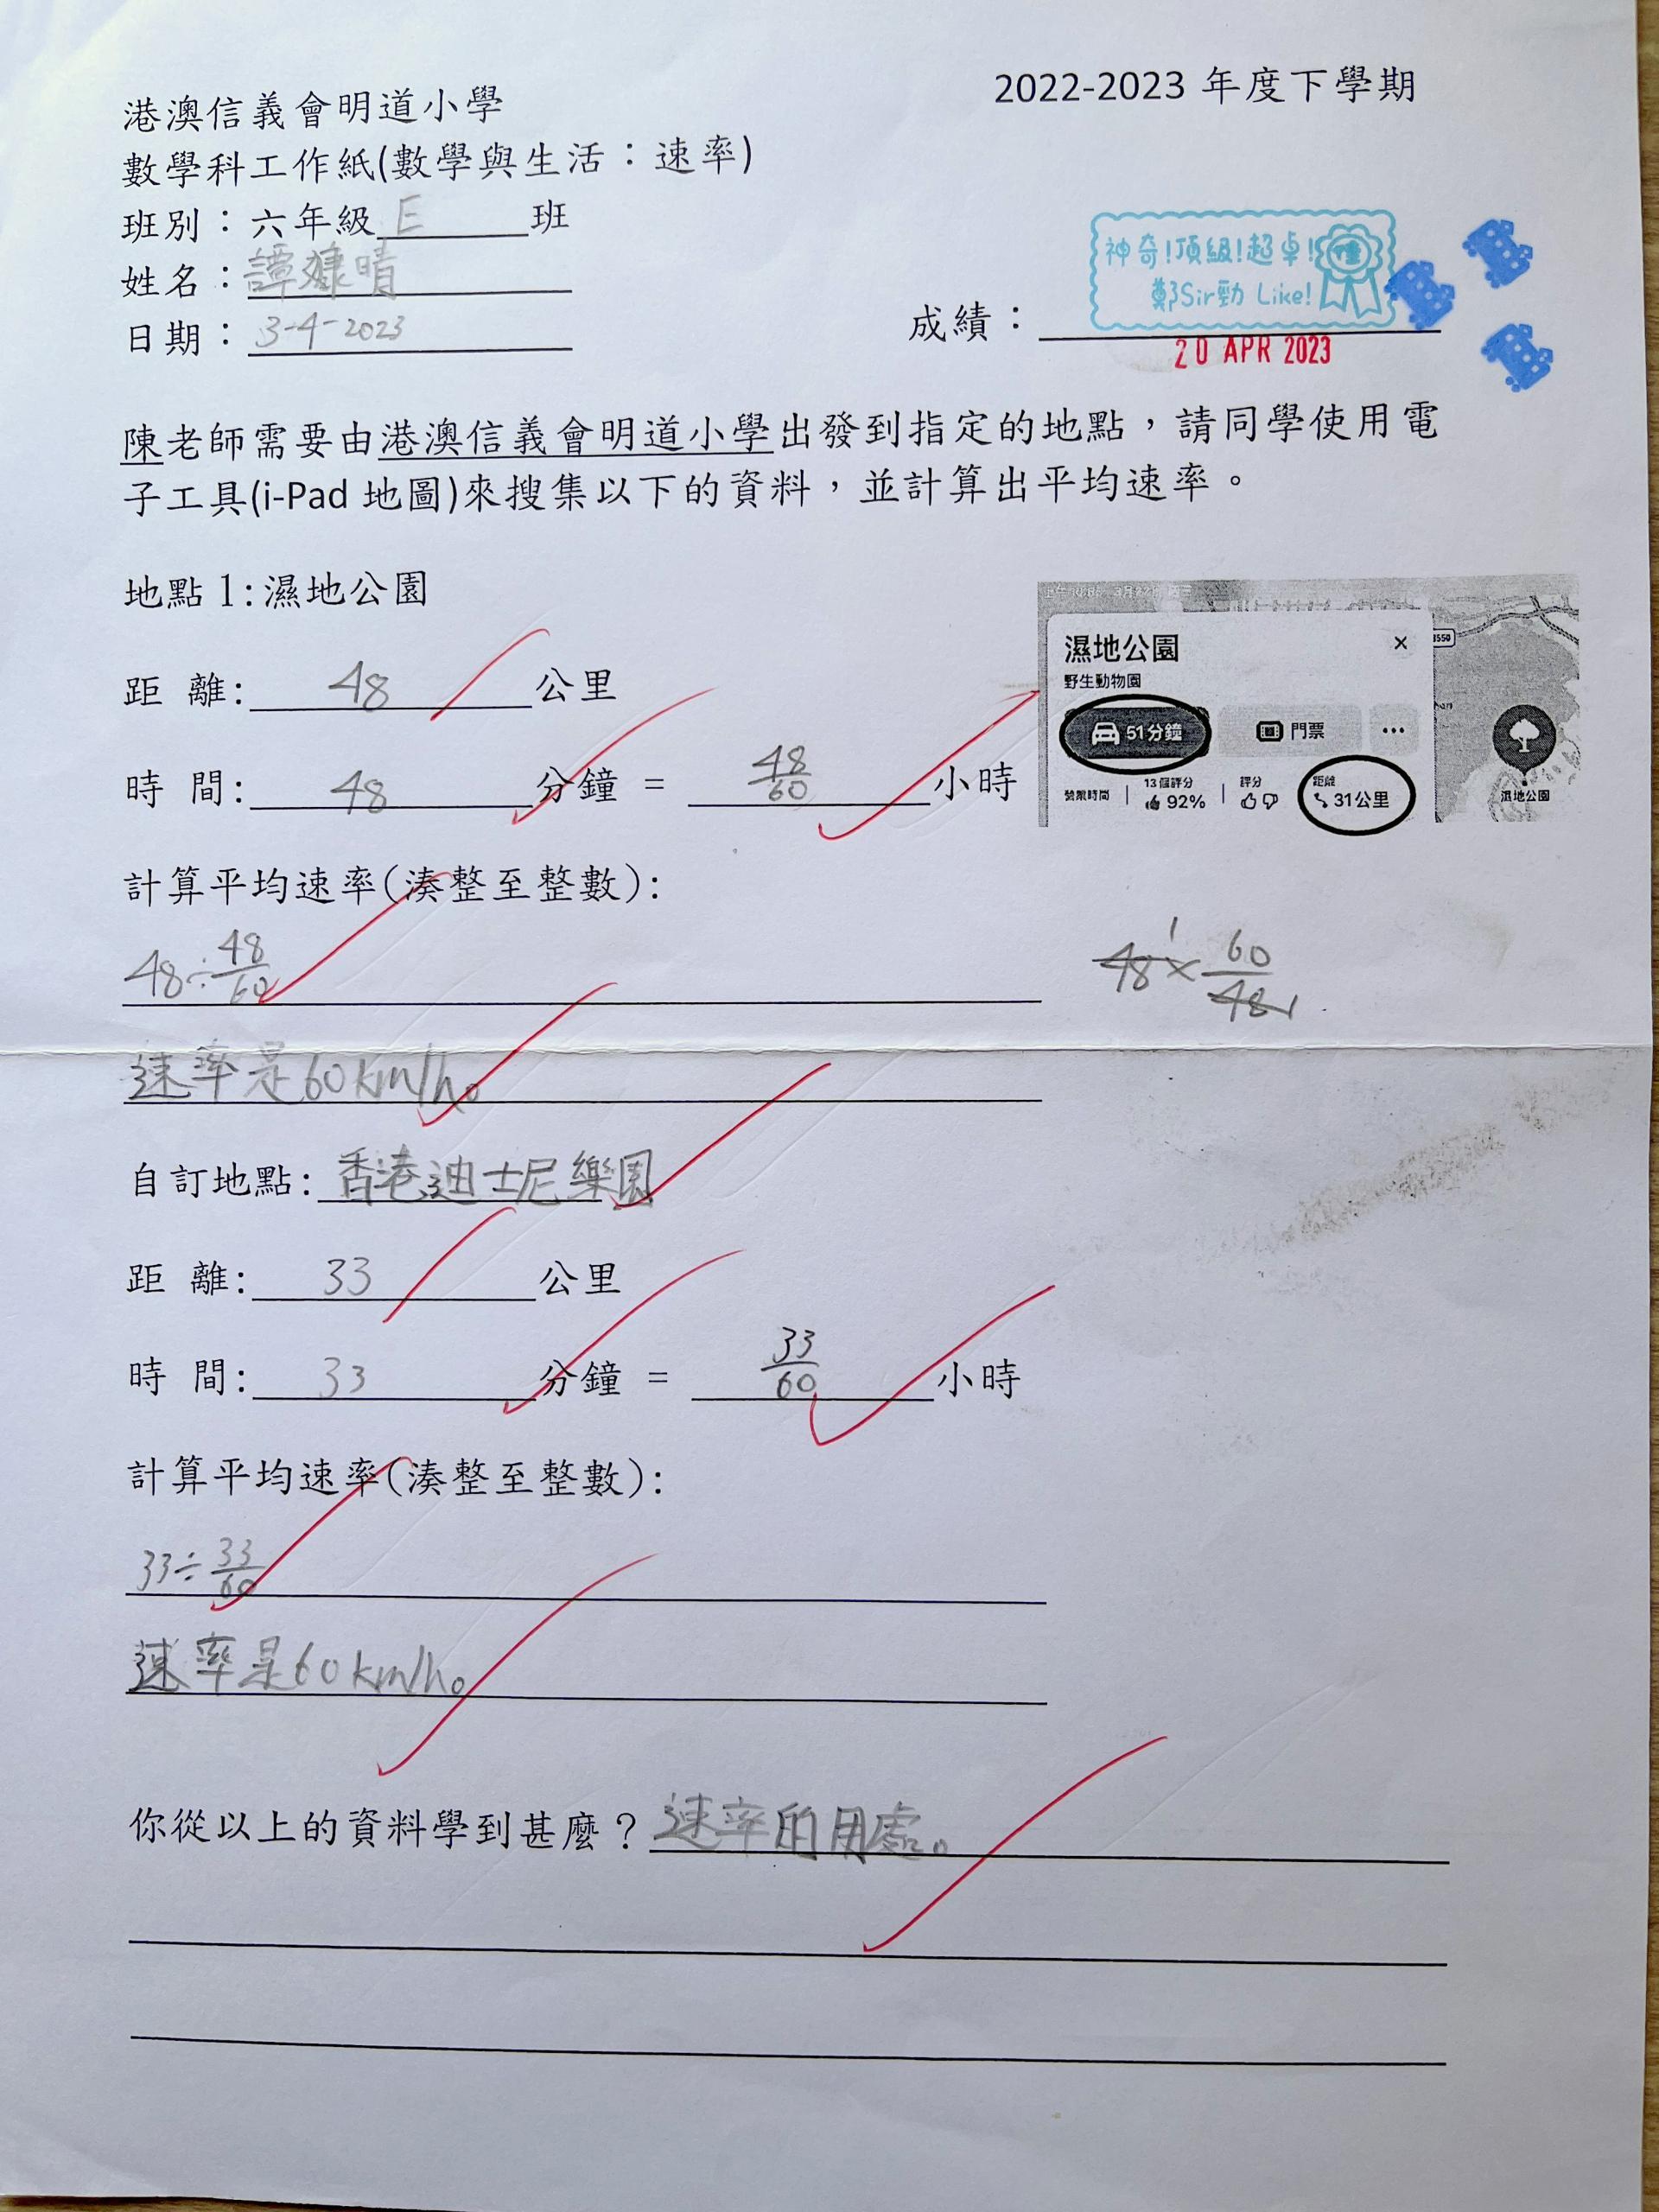 2022-2023 年度下學期
港澳信義會明道小學
數學科工作紙(數學與生活：速率)
班別：六年級 E 班
姓名：譚 晴
日期：3-4-2023
神奇!頂級!超卓!
鄭Sir勁 Like!
成績：
20 APR 2023
陳老師需要由港澳信義會明道小學出發到指定的地點，請同學使用電
子工具(i-Pad 地圖)來搜集以下的資料，並計算出平均速率。
地點 1:濕地公園
距 離: 48 公里
時 間: 48 分鐘 = 48/60 小時
濕地公園 ×
野生動物園
51分鐘 門票 ...
營業時間 13個評分 評分 距離
92% 31公里
濕地公園
計算平均速率(湊整至整數):
48÷48/60
48 1 × 60/48 1
速率是60km/h。
自訂地點: 香港迪士尼樂園
距 離: 33 公里
時 間: 33 分鐘 = 33/60 小時
計算平均速率(湊整至整數):
33÷33/60
速率是60km/h。
你從以上的資料學到甚麼？速率的用處。